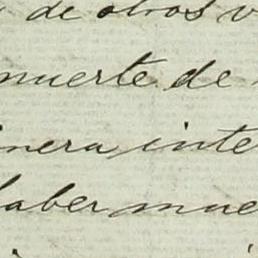 de otros v
muerte de
nera inte
haber mue